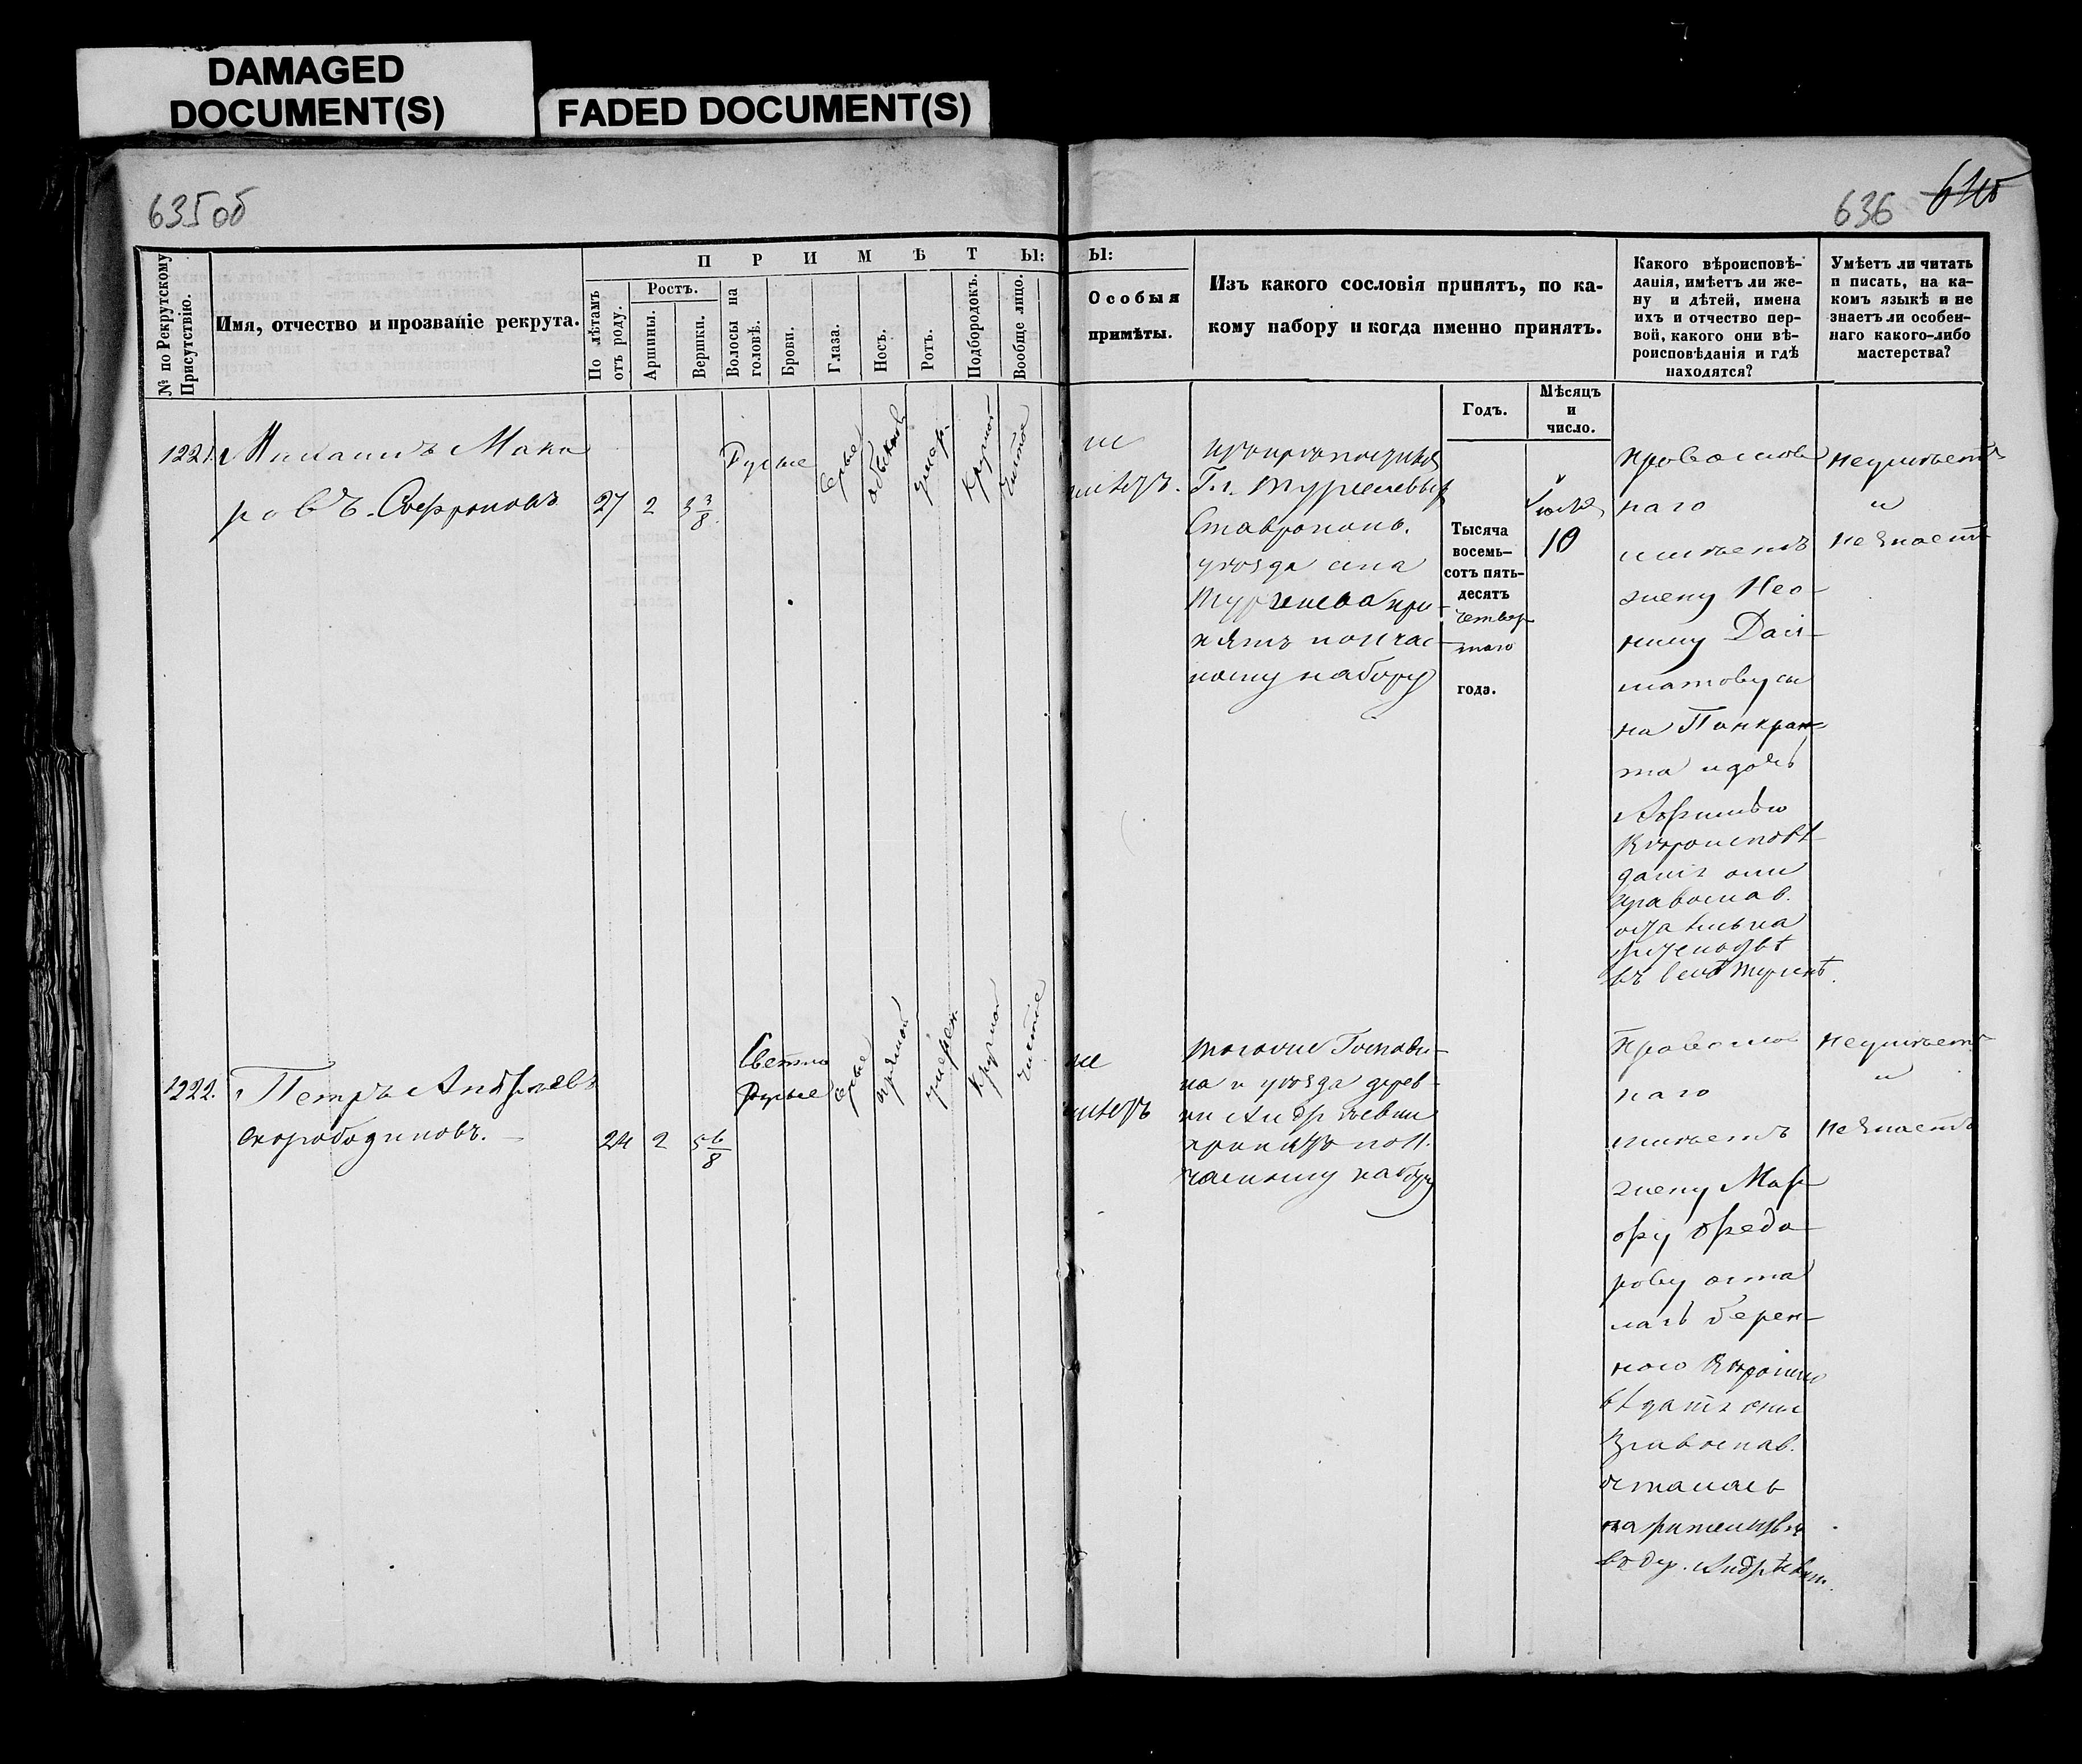 DAMAGED
DOCUMENT(S)
FADED DOCUMENT(S)
635 об
636
№ по Рекрутскому
Присутствію.
Имя, отчество и прозваніе рекрута.
ПРИМѢТЫ:
По лѣтамъ
отъ роду.
Ростъ.
Аршины.
Вершки.
Волосы на
головѣ.
Брови.
Глаза.
Носъ.
Ротъ.
Подбородокъ.
Вообще лицо.
Ы:
Особыя
примѣты.
Изъ какого сословія принятъ, по ка-
кому набору и когда именно принятъ.
Годъ.
Мѣсяцъ
и
число.
Какого вѣроисповѣ-
данія, имѣетъ ли же-
ну и дѣтей, имена
ихъ и отчество пер-
вой, какого они вѣ-
роисповѣданія и гдѣ
находятся?
Умѣетъ ли читать
и писать, на ка-
комъ языкѣ и не
знаетъ ли особен-
наго какого-либо
мастерства?
1221.
Мака
ровъ. Софроновъ
27
2
3 3/8.
Русые
Серые
обыкнов
умер.
Круглой
Чистое
не
имѣетъ.
Ставропол.
уѣзда села
Тургенева при-
нятъ по II час-
ному набору
Тысяча
восемь-
сотъ пять-
десятъ
четвер-
таго
года.
Іюля
10
Православ
наго
имѣетъ
жену Нео-
нилу
сы
на Панкра-
та и дочь
Вѣроисповѣ-
данія они
православ.
въ селѣ
Неумѣетъ
и
Незнаетъ
1222.
Петръ Андреевъ
Скорободиковъ.
24
2
5 6/8
Светло
Русые
серые
прямой
умерен
Круглой
Чистое
не
имѣетъ
тогоже Господи-
на и уѣзда дерев-
ни Андреевки
принятъ по II.
частному набору
Православ
наго
имѣетъ
жену Мар
ѳу Ѳедо-
рову оста
лась берем-
ного Вѣроиспо
вѣданія они
Православ.
осталась
на
въ дер. Андрѣевкѣ.
Неумѣетъ
и
Незнаетъ